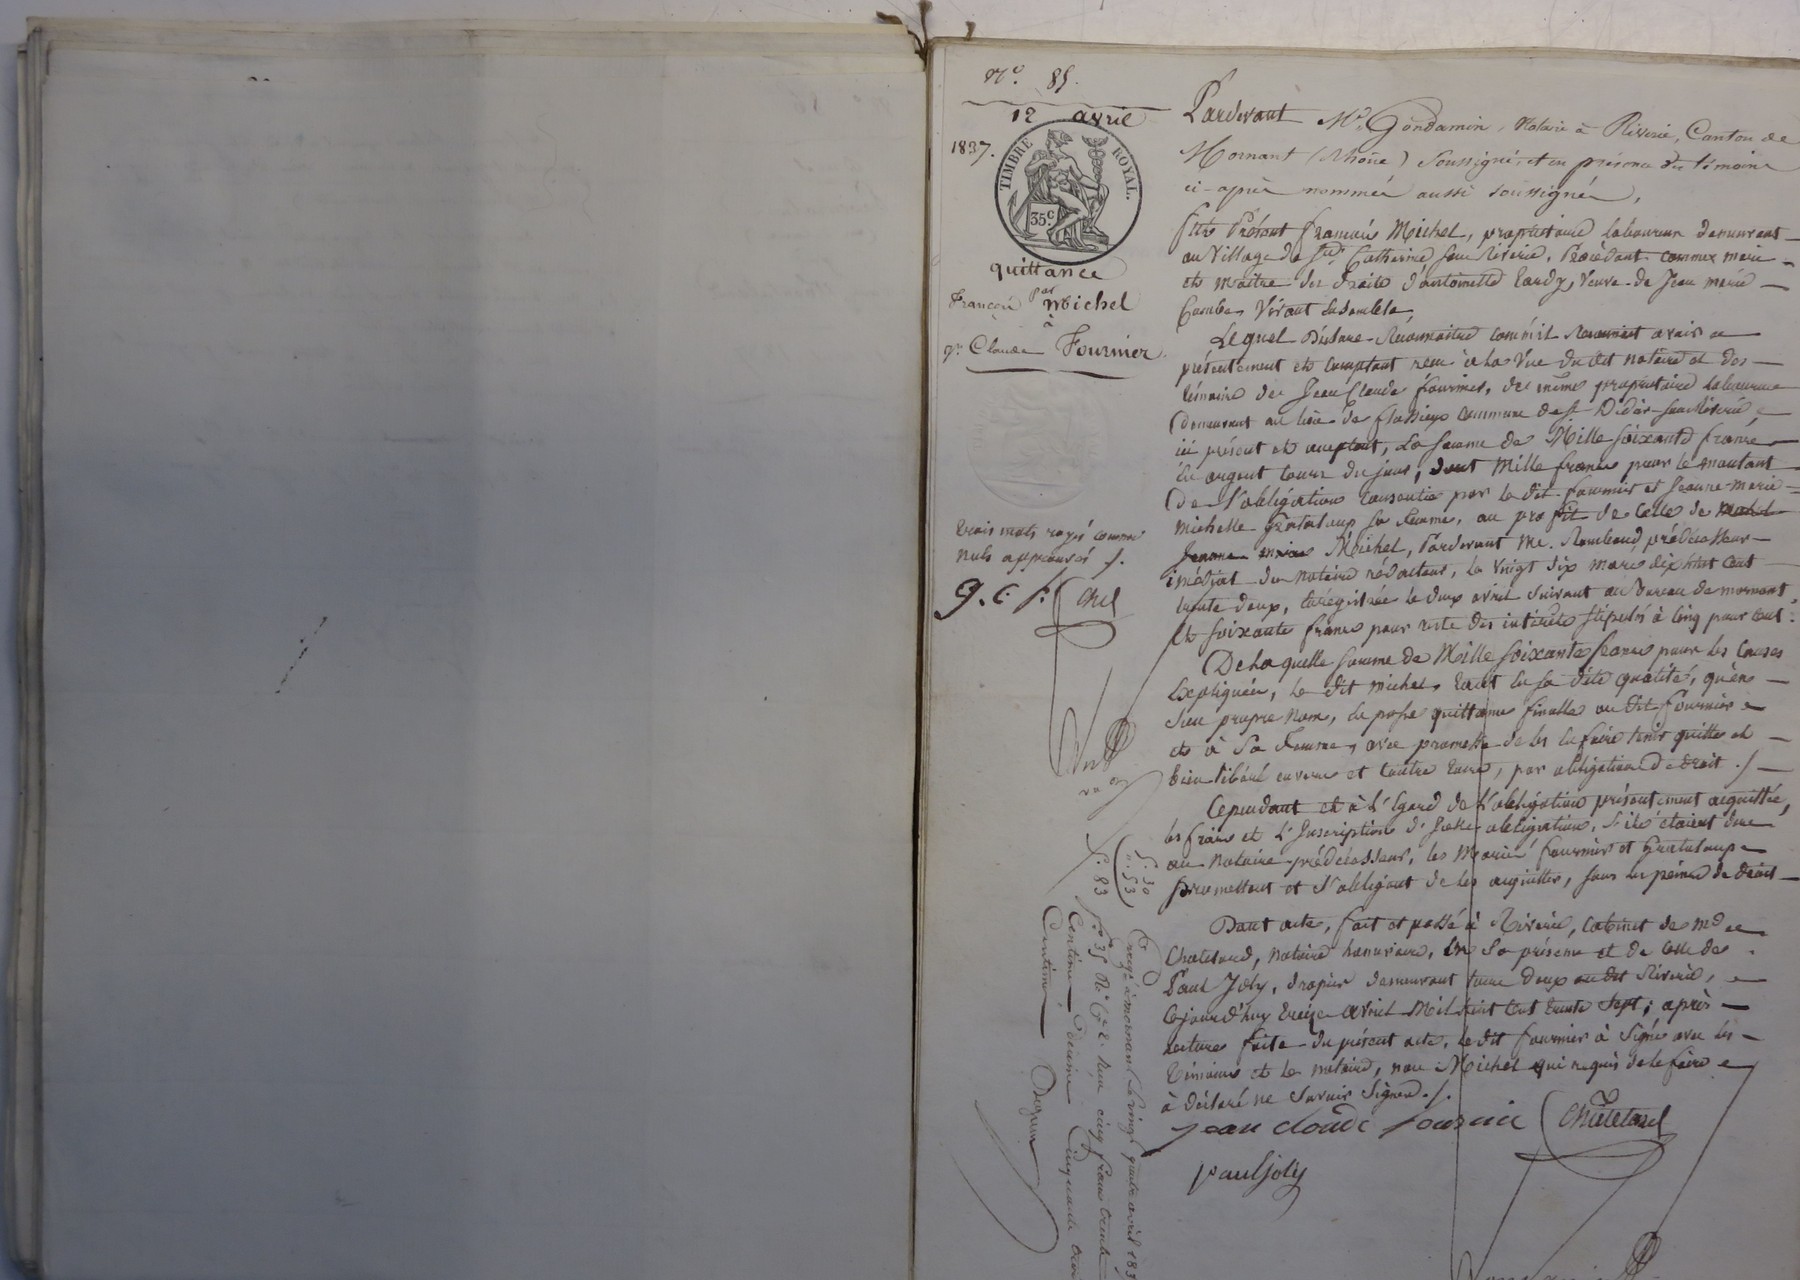 N.° 85.
12 avril
1837.
TIMBRE ROYAL.
35.c
quittance
par
François Michel
à
Claude Fournier
trois mots rayés comme
nuls approuvés /.
J. C. f. Chel
Pardevant Me. Gondamin, Notaire à Riverie, Canton de
Mornant (Rhône) soussigné, et en présence des témoins
ci-après nommés aussi soussignés,
fut Présent françois Michel, propriétaire laboureur demeurant
au Village de Ste Catherine sous Riverie, Procédant comme mari
et maitre des droits d'antoinette Tardy, Veuve de Jean marie
Combe, Vivant Ensemble,
Lequel Déclare Reconnaitre comm'il Reconnait avoir
présentement et comptant reçu à la Vue du dit notaire et des
témoins de Jean Claude fournier, de même propriétaire laboureur
demeurant au lieu de flassieux commune de St Didier-sous-Riverie,
ici présent et acceptant, La Somme de Mille soixante francs
en argent cours du jour, dont Mille francs pour le montant
de l'obligation Consentie par le dit fournier et Jeanne-Marie
michelle Grataloup sa femme, au profit de Celle de
Jeanne marie Michel, Pardevant Me. Rambaud, prédécesseur
imédiat du notaire rédacteur, le vingt six mars dix huit Cent
trente deux, Enregistrée le deux avril suivant au bureau de mornant.
Et soixante francs pour reste des intérêts stipulés à cinq pour Cent.
De Laquelle somme de Mille soixante francs pour les Causes
Expliquées, le dit michel, tant en sa dite qualité, qu'en
Son propre Nom, En passe quittance finalle au dit fournier
et à Sa femme, avec promesse de les En faire tenir quittes et
bien libéré envers et Contre tous, par obligation de droit ./
Cependant et à l'Egard de l'obligation présentement acquittée,
les frais et l'Inscription d'Icelle obligation, s'ils étaient dus
au Notaire prédécesseur, les Mariés fournier et Grataloup
promettent et s'obligent de les acquitter, sous les peines de droit
Dont acte, fait et passé à Riverie, Cabinet de Me
Chatelard, notaire honoraire, En Sa présence et de Celle de
Paul Joly, drapier demeurant tous deux au dit Riverie,
Cejourd'huy treize avril Mil huit Cent trente Sept; après
lecture faite du présent acte, le dit fournier à Signé avec les
témoins et le notaire, non Michel qui requis de le faire
à déclaré ne Savoir Signer ./.
jean cloude fournié Chatelard
paul joly
5. 30
". 53
5. 83
Enreg.é à mornant Le vingt quatre avril 183
f.° 35 R.° C.e 2. Reçu cinq francs trente
Centimes Décime Cinquante trois
Centimes